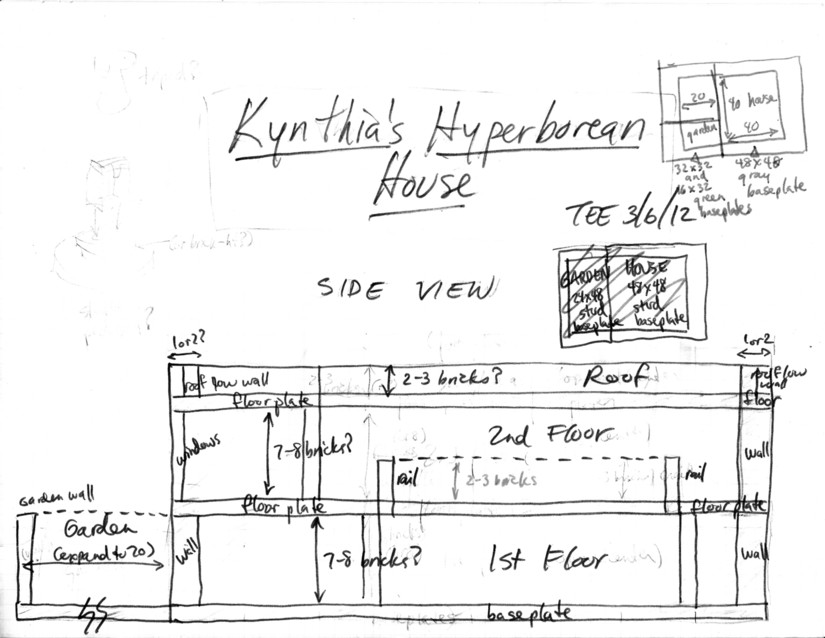 Kynthia's Hyperborean
House
20
40 house
garden
40
32x32
and
16x32
green
baseplates
48x48
gray
baseplate
TEE 3/6/12
SIDE VIEW
GARDEN
24x48
stud
baseplate
HOUSE
48x48
stud
baseplate
1 or 2?
1 or 2
roof low wall
2-3 bricks?
Roof
roof low
wall
floor plate
floor
windows
7-8 bricks?
2nd Floor
wall
rail
2-3 bricks
rail
garden wall
floor plate
floor plate
Garden
(expand to 20)
wall
7-8 bricks?
1st Floor
wall
baseplate